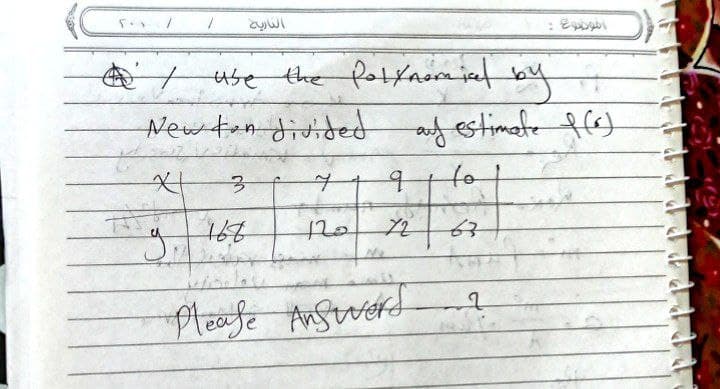 الموضوع : التاريخ / / ٢٠٠
A / use the Polynomial by
Newton divided and estimate f(6)
x | 3 | 7 | 9 | 10
y | 168 | 120 | 72 | 63
Please Answerd ---?